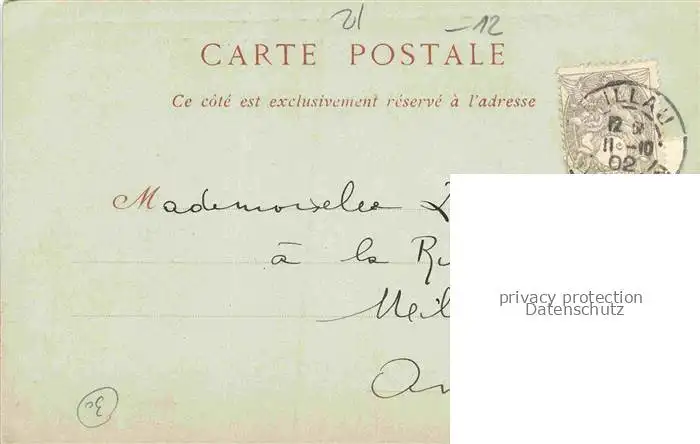 21 -12
CARTE POSTALE
Ce côté est exclusivement réservé à l'adresse
ILLAU
12
11 -10
02
Mademoiselle
à la
Meil
privacy protection
Datenschutz
30